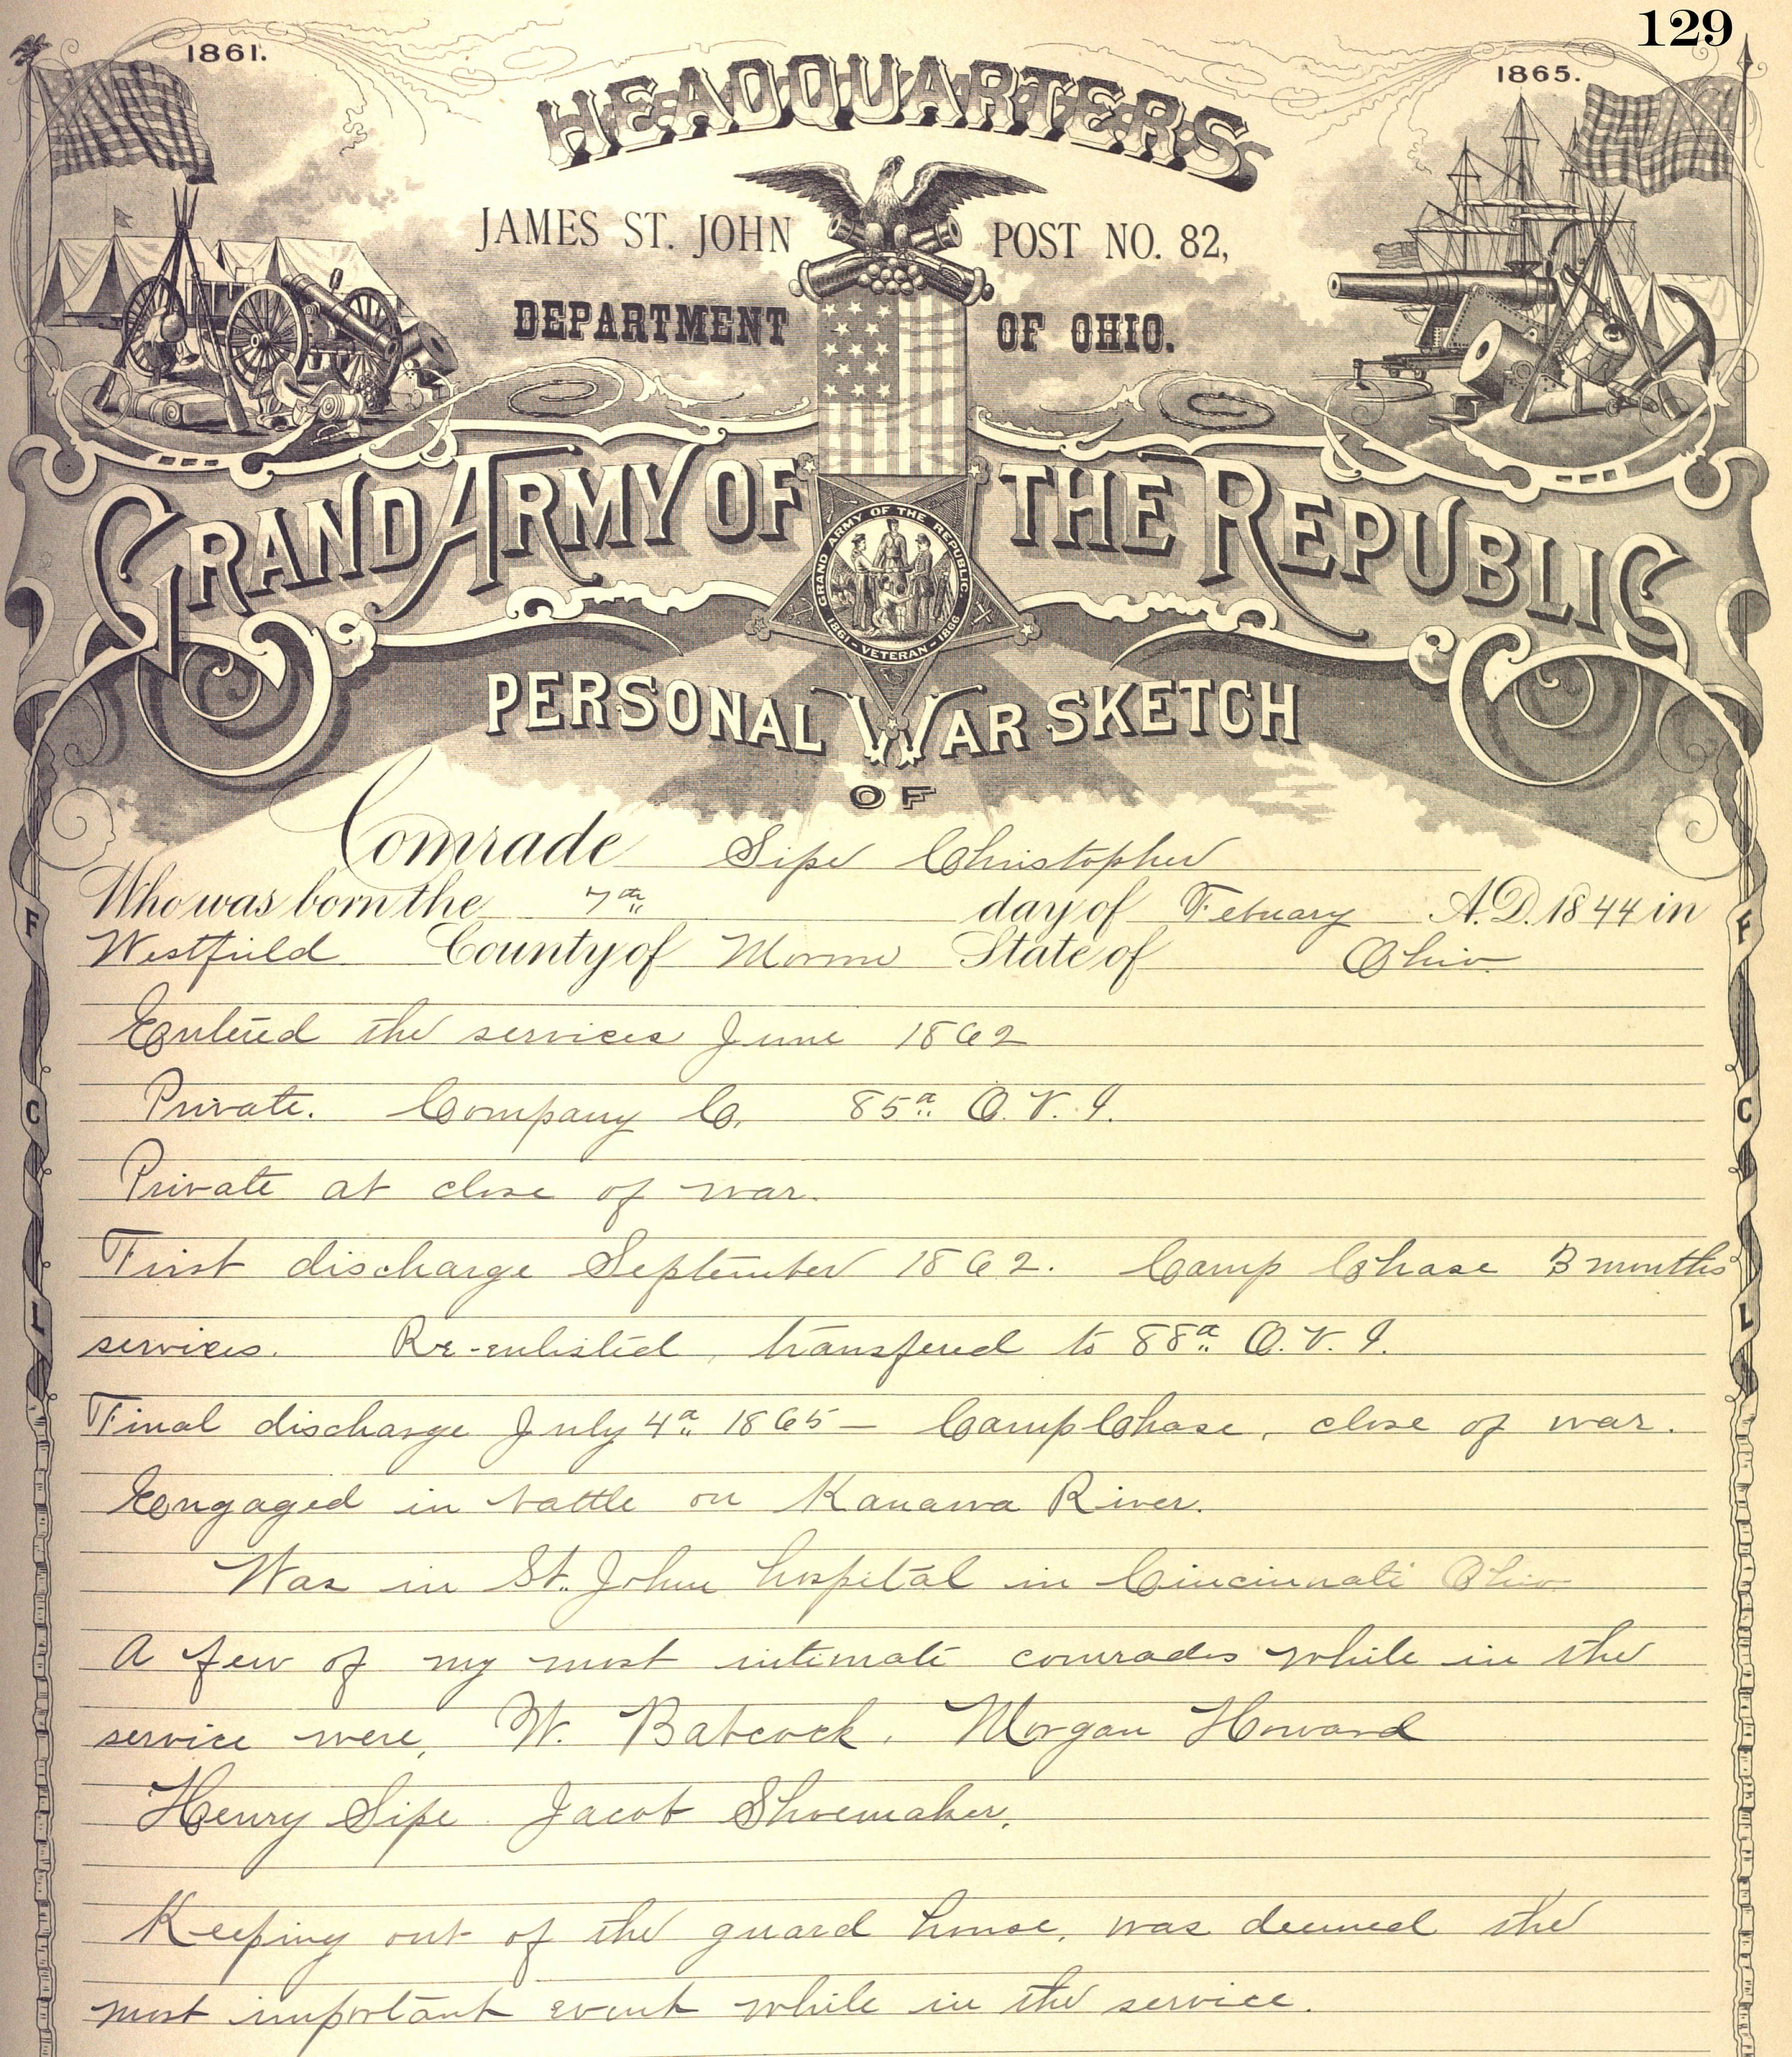 129
1861.
1865.
HEADQUARTERS
JAMES ST. JOHN POST NO. 82,
DEPARTMENT OF OHIO.
GRAND ARMY OF THE REPUBLIC
GRAND ARMY OF THE REPUBLIC
1861 - VETERAN - 1866
PERSONAL WAR SKETCH
OF
Comrade Sipe Christopher
Who was born the 7th day of Febuary A.D. 1844 in
Westfield County of Morrow State of Ohio
Entered the services June 1862
Private. Company C. 85th O. V. I.
Private at close of war.
First discharge September 1862. Camp Chase 3 months
services. Re-enlisted, transfered to 88th O. V. I.
Final discharge July 4th 1865 - Camp Chase, close of war.
Engaged in battle on Kanawa River.
Was in St. John hospital in Cincinnati Ohio
A few of my most intimate comrades while in the
service were, W. Babcock, Morgan Howard
Henry Sipe Jacob Shoemaker.
Keeping out of the guard house, was deemed the
most important event while in the service.
F
C
L
F
C
L